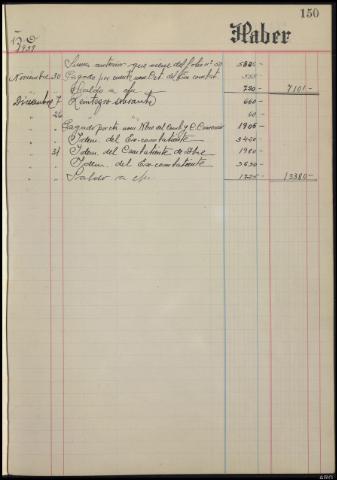 150
1939
Haber
Suma anterior que viene del folio nº 50 5826 -
Noviembre 30 Pagado por cuenta nom. Oct. del Ex-combat. 555 -
" " Saldo a c/n 720 - 7101 -
Diciembre 7 Reintegro sobrante 660 -
" 26 " " 60 -
" " Pagado por cta nom. Nbre del Comb. y E. 1906 -
" " Idem. del Ex-combatiente 3450 -
" 31 Idem. del Combatiente de Dbre 1980 -
" " Idem. del Ex-combatiente 3630 -
" " Saldo a c/n 13380 -